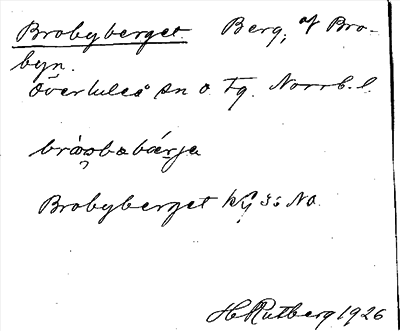 Brobyberget. Berg, af Bro-
byn.
Överluleå sn o. Tg. Norrb. l.
Brobyberget 36 NO.
H Rutberg 1926